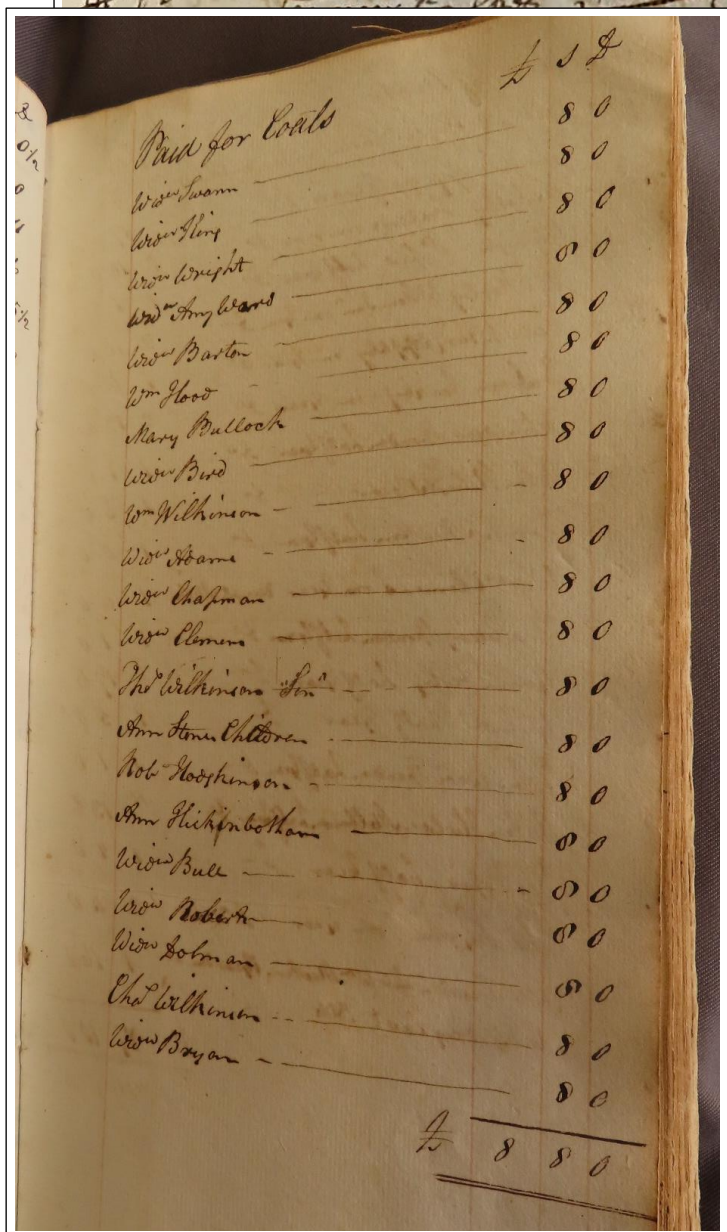 £ S D
Paid for Coals
Widw Swann 8 0
Widw King 8 0
Widw Wright 8 0
Widw Amy Ward 8 0
Widw Barton 8 0
Wm Hood 8 0
Mary Bullock 8 0
Widw Bird 8 0
Wm Wilkinson 8 0
Widw Adams 8 0
Widw Chapman 8 0
Widw Clemens 8 0
Thos Wilkinson "Sen" 8 0
Ann Stones Children 8 0
Rob Hodgkinson 8 0
Ann Hickinbotham 8 0
Widw Bull 8 0
Widw Roberts 8 0
Widw Dolman 8 0
Chas Wilkinson 8 0
Widw Bryan 8 0
£ 8 8 0